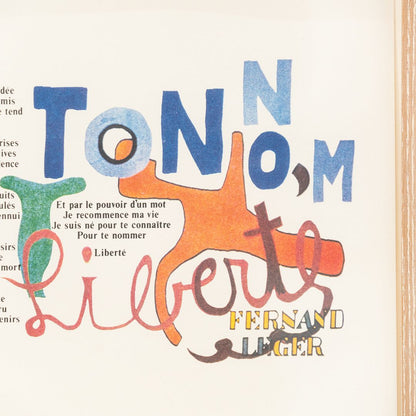 dée
mis
e tend
rises
ives
ence
uits
ulés
ennui
sirs
e
mort
e
ru
enirs
TON NOM
Et par le pouvoir d'un mot
Je recommence ma vie
Je suis né pour te connaître
Pour te nommer
Liberté
Liberté
FERNAND
LEGER